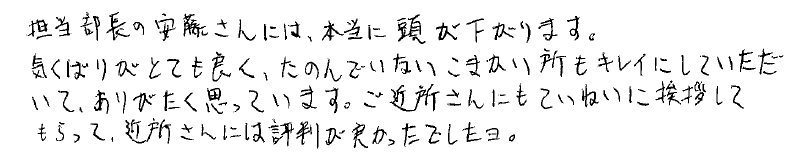 担当部長の安藤さんには、本当に頭が下がります。
気くばりがとても良く、たのんでいないこまかい所もキレイにしていただ
いて、ありがたく思っています。ご近所さんにもていねいに挨拶して
もらって、近所さんには評判が良かったでしたヨ。